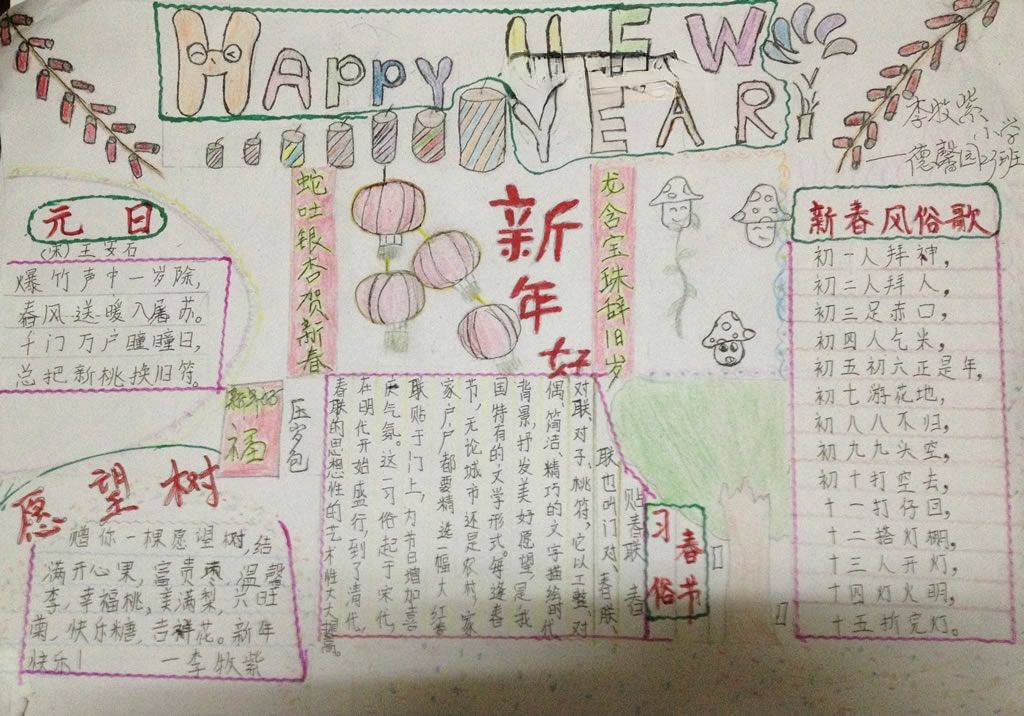 HAPPY NEW
YEAR
李牧紫
小学
一德馨园23班
元日
(宋)王安石
爆竹声中一岁除,
春风送暖入屠苏。
千门万户瞳瞳日,
总把新桃换旧符。
蛇吐银杏贺新春
新年好
龙含宝珠辞旧岁
新春风俗歌
初一人拜神,
初二人拜人,
初三足赤口,
初四人乞米,
初五初六正是年,
初七游花地,
初八八不归,
初九九头空,
初十打空去,
十一打仔回,
十二搭灯棚,
十三人开灯,
十四灯火明,
十五折完灯。
新年好
福
压岁包
愿望树
赠你一棵愿望树,结
满开心果,富贵枣,温馨
李,幸福桃,美满梨,兴旺
菊,快乐糖,吉祥花。新年
快乐!
一李牧紫
春节
习俗
贴春联 春
联也叫门对、春联、
对联、对子、桃符,它以工整、对
偶、简洁、精巧的文字描绘时代
背景,抒发美好愿望,是我
国特有的文学形式。每逢春
节,无论城市还是农村,家
家户户都要精选一幅大红春
联贴于门上,为节日增加喜
庆气氛。这一习俗起于宋代,
在明代开始盛行,到了清代,
春联的思想性的艺术性大大提高。